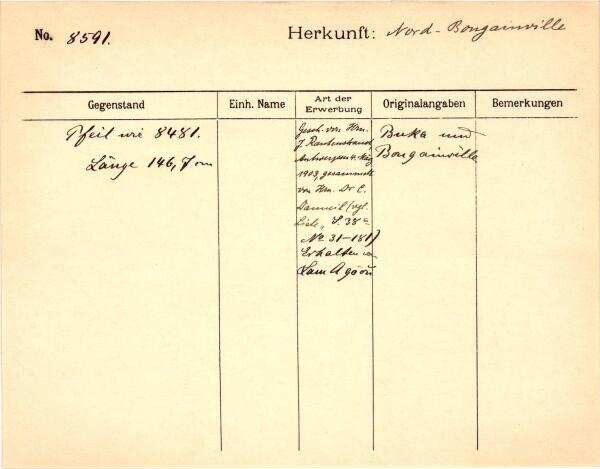 No. 8591. Herkunft: Nord-Bougainville
Gegenstand Einh. Name Art der Erwerbung Originalangaben Bemerkungen
Pfeil wie 8481.
Länge 146,7 cm
Gesch. von Hrn.
J. Rautenstrauch,
Antwerpen 4. Aug.
1903, gesammelt
von Hrn. Dr C.
Danneil (vgl.
Liste, S. 38
No 31-181)
Erhalten
Buka und
Bougainville